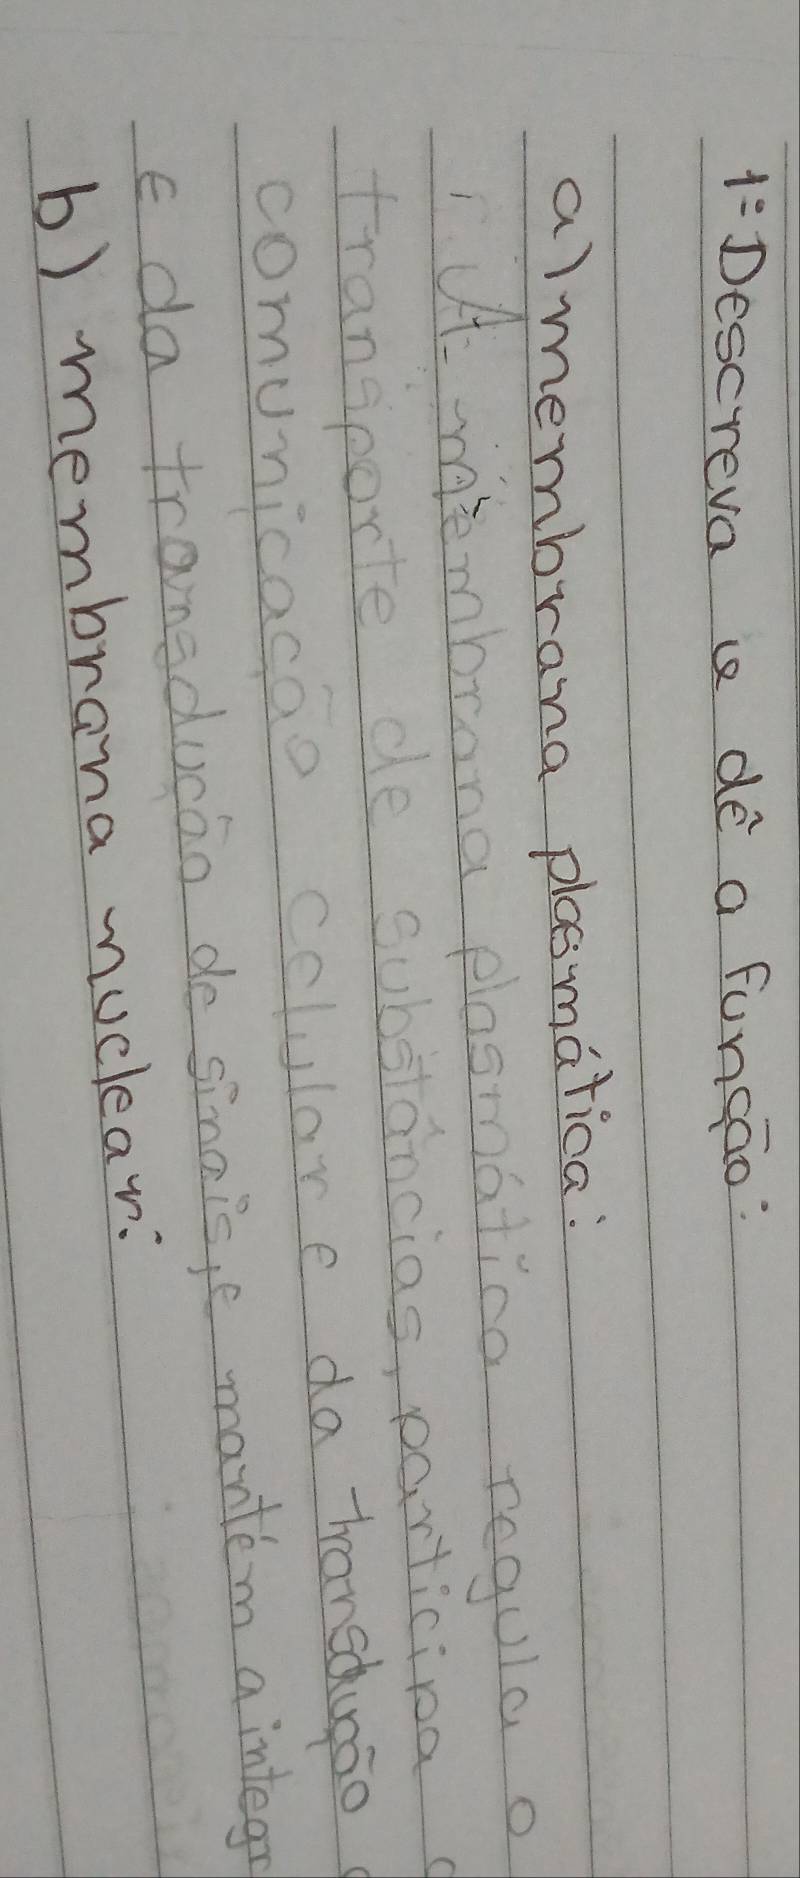 1: Descreva e dê a função:
a) membrana plasmática:
A membrana plasmática regula o
transporte de substâncias, participa
comunicação celular e da transdução
e da transdução de sinais, e mantém a integr
b) membrana nuclear: